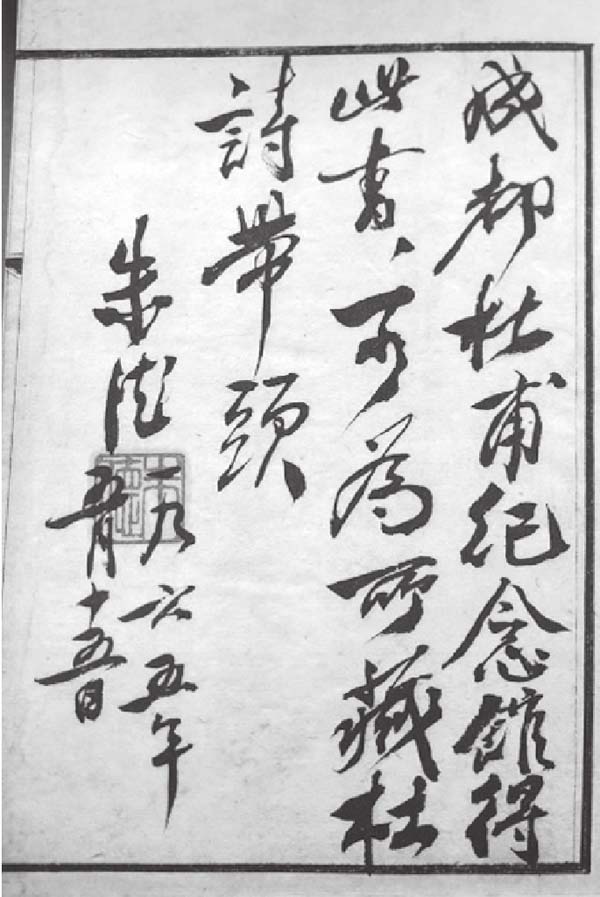 成都杜甫纪念館得
此書、可為所藏杜
詩帶頭
朱德
一九六五年
五月十五日